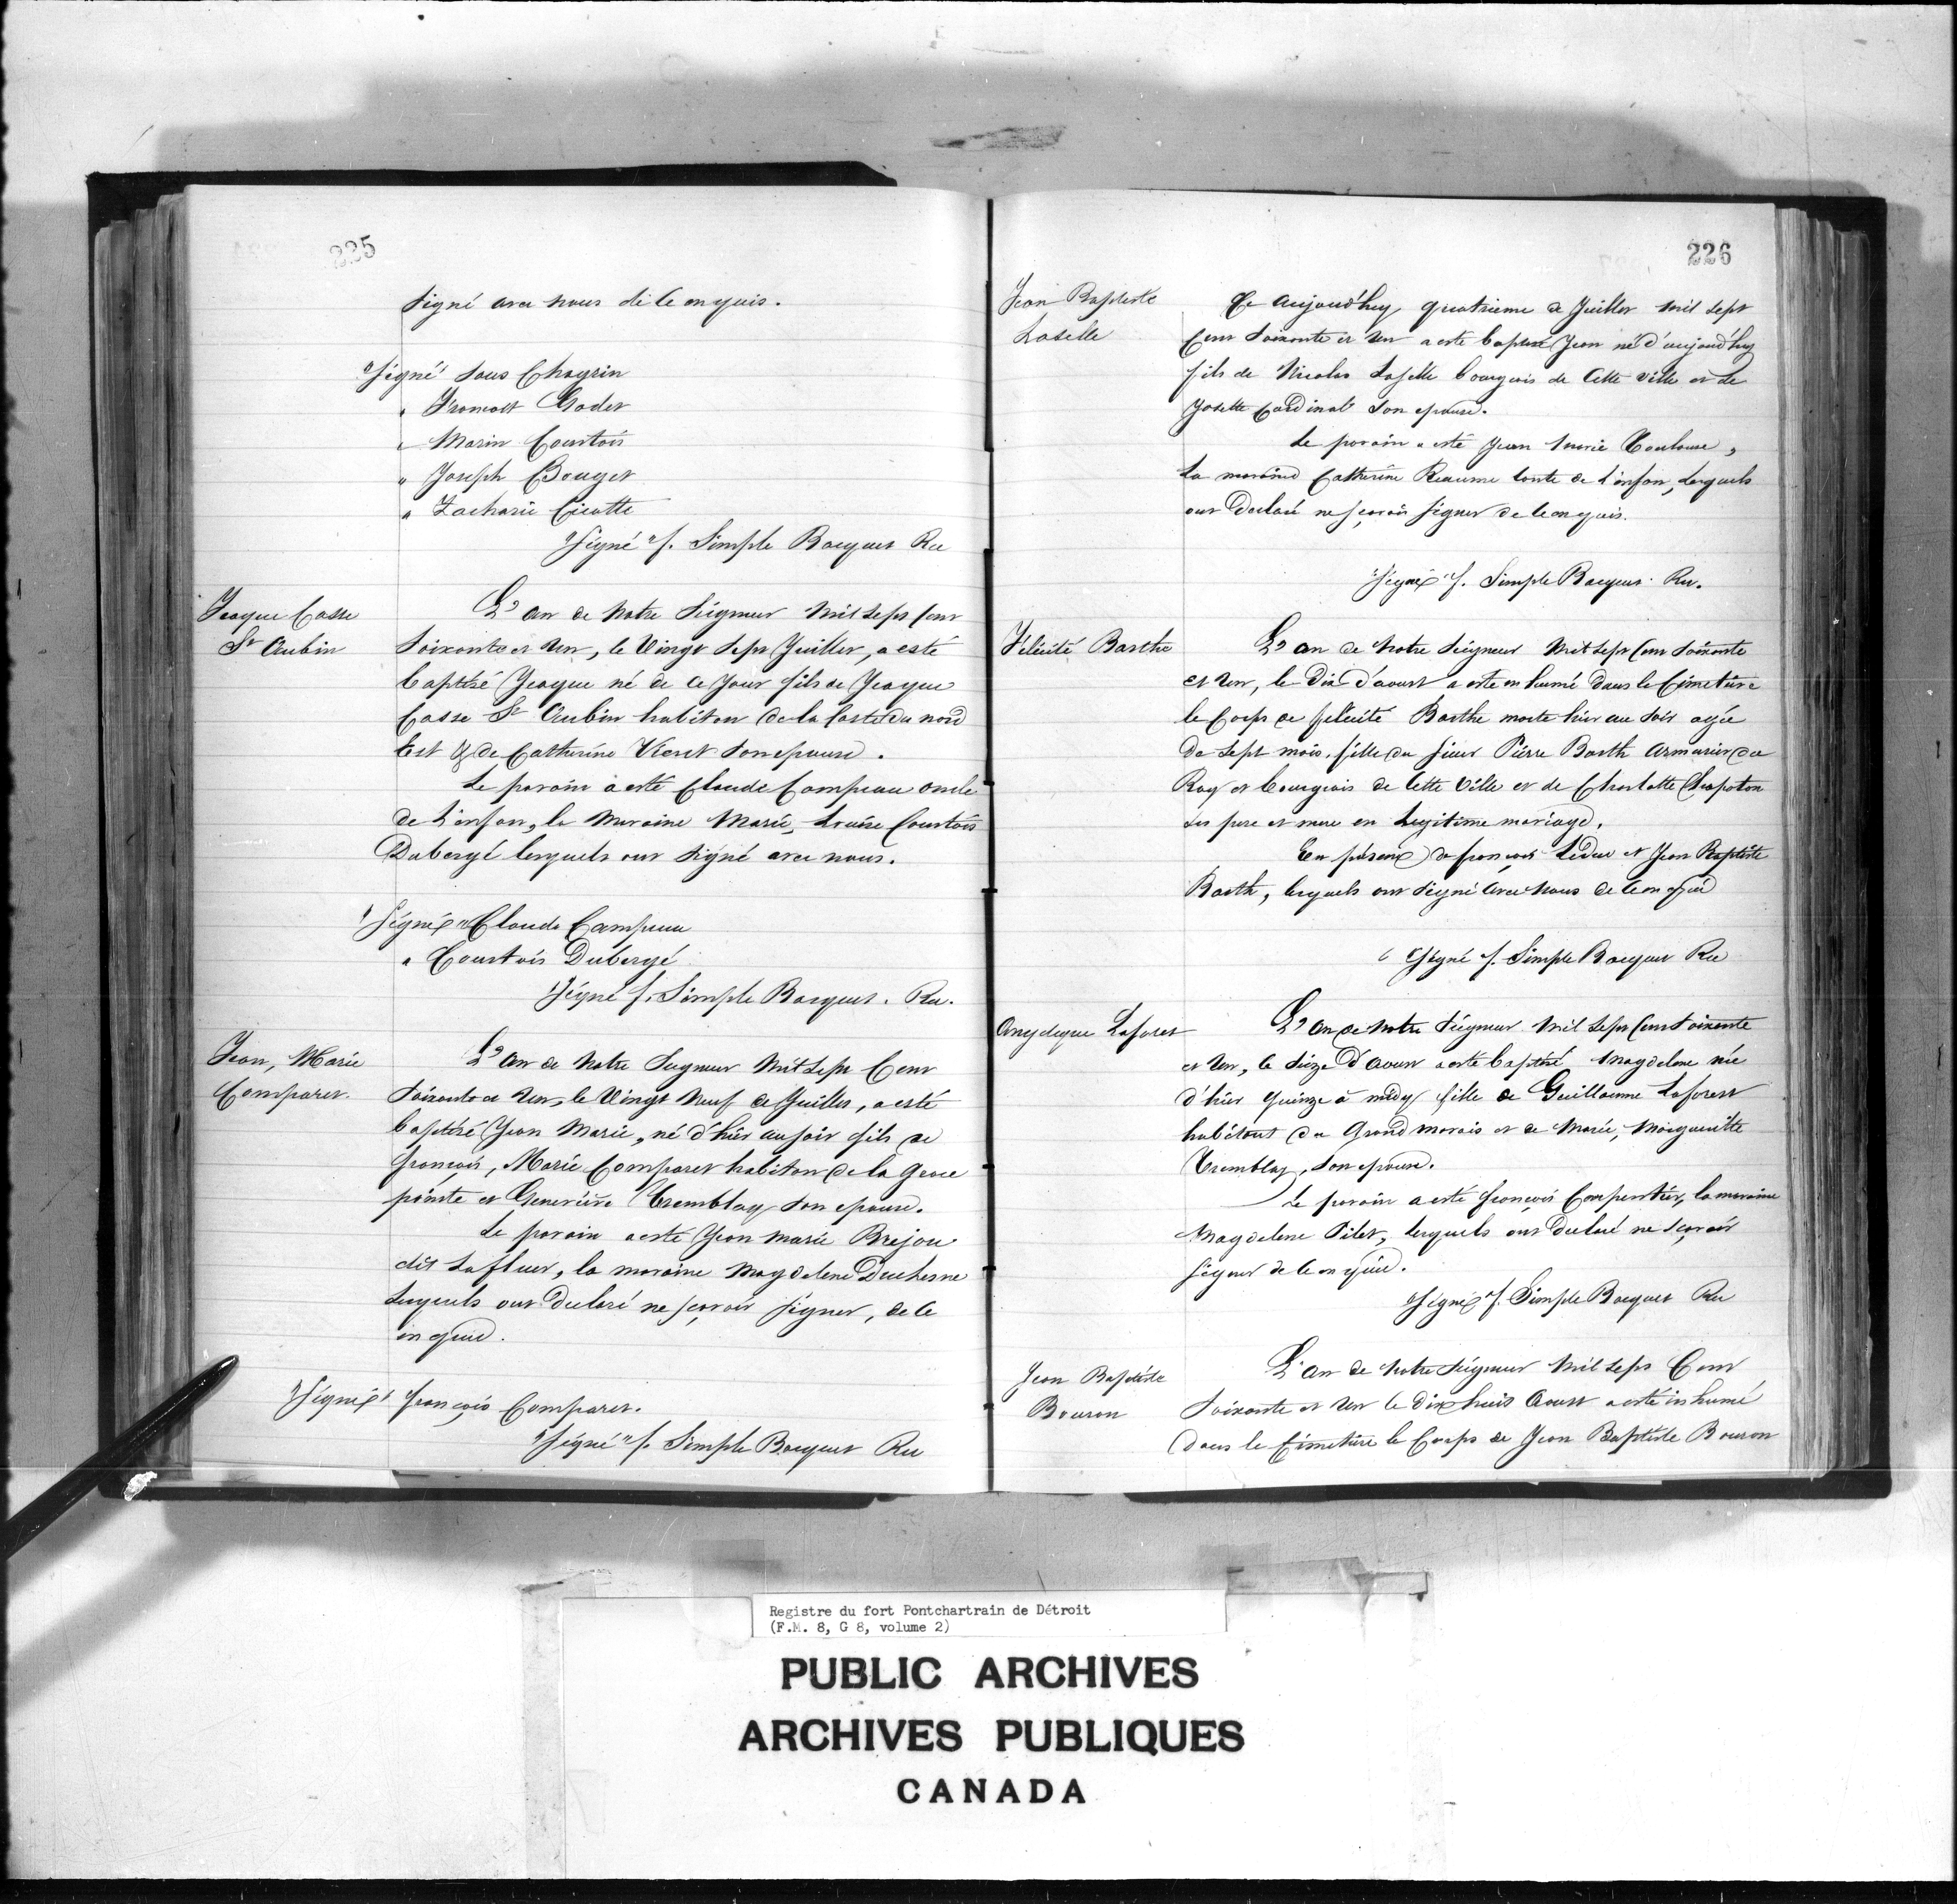 225
signé avec nous de ce enquis.
"signé" Sous Chagrin
" Fransois Godet
" Marin Courtois
" Joseph Bouget
" Zacharie Cicotte
"signé" f. Simple Bocquet Rec
Jeaque Casse
St Aubin
L'an de Notre Seigneur Mil Sept Cent
Soixante et Un, le Vingt Sept Juillet, a esté
baptisé Jeaque né de ce Jour fils de Jeaque
Casse St Aubin habitan de la Coste du nord
Est & de Catherine Vieret son epouse.
Le parain a esté Claude Campeau oncle
de l'enfan, la Maraine Marie, Louise Courtois
Dubergé lesquels ont signé avec nous.
"signé" Claude Campeau
" Courtois Dubergé
"signé f. Simple Bocquet. Rec.
Jean, Marie
Comparet.
L'an de Notre Seigneur Mil Sept Cent
Soixante et Un, le Vingt Neuf de Juillet, a esté
baptisé Jean Marie, né d'hier au soir fils de
françois, Marie Comparet habitan de la Grose
pointe et Geneviève Tremblay son epouse.
Le parain a esté Jean Marie Brejou
dit Lafleur, la maraine Magdelene Duchesne
Lesquels ont Declaré ne sçavoir signer, de ce
enquis.
"Signé" françois Comparet.
"signé" f. Simple Bocquet Rec
226
Jean Baptiste
Laselle
Ce aujourd'huy quatrieme de Juillet mil sept
Cent Soixante et Un a esté baptisé Jean né d'aujourd'huy
fils de Nicolas Laselle bourgeois de Cette ville et de
Josette Cardinal son epouse.
Le parain a esté Jean Marie Toulouse,
La maraine Catherine Reaume tante de l'enfan, Lesquels
ont Declaré ne sçavoir signer de ce enquis.
"signé" f. Simple Bocquet Rec.
Félicité Barthe
L'an de Notre Seigneur Mil Sept Cent Soixante
et Un, le Dix d'aoust a esté enhumé Dans le Cimetiere
le Corps de felicité Barthe morte hier au soir agée
de Sept mois, fille du sieur Pierre Barth armurier du
Roy et bourgeois de Cette Ville et de Charlotte Chapoton
ses pere et mere en Legitime mariage.
En présence de françois Leduc et Jean Baptiste
Barth, lesquels ont signé avec Nous de ce enquis
"signé f. Simple Bocquet Rec
Angelique Laforest
L'an de Notre Seigneur Mil Sept Cent Soixante
et Un, le Seize d'aoust a esté baptisé Magdelene née
d'hier quinze à midy fille de Guillaume Laforest
habitant du Grand marais et de Marie, Marguerite
Tremblay, son epouse.
Le parain a esté françois Carpentier, la maraine
Magdelene Pilet, lesquels ont Declaré ne sçavoir
signer de ce enquis.
"signé" f. Simple Bocquet Rec
Jean Baptiste
Bouron
L'an de Notre Seigneur Mil Sept Cent
Soixante et Un le dixhuit Aoust a esté inhumé
Dans le Cimetiere le Corps de Jean Baptiste Bouron
Registre du fort Pontchartrain de Détroit
(F.M. 8, G 8, volume 2)
PUBLIC ARCHIVES
ARCHIVES PUBLIQUES
CANADA